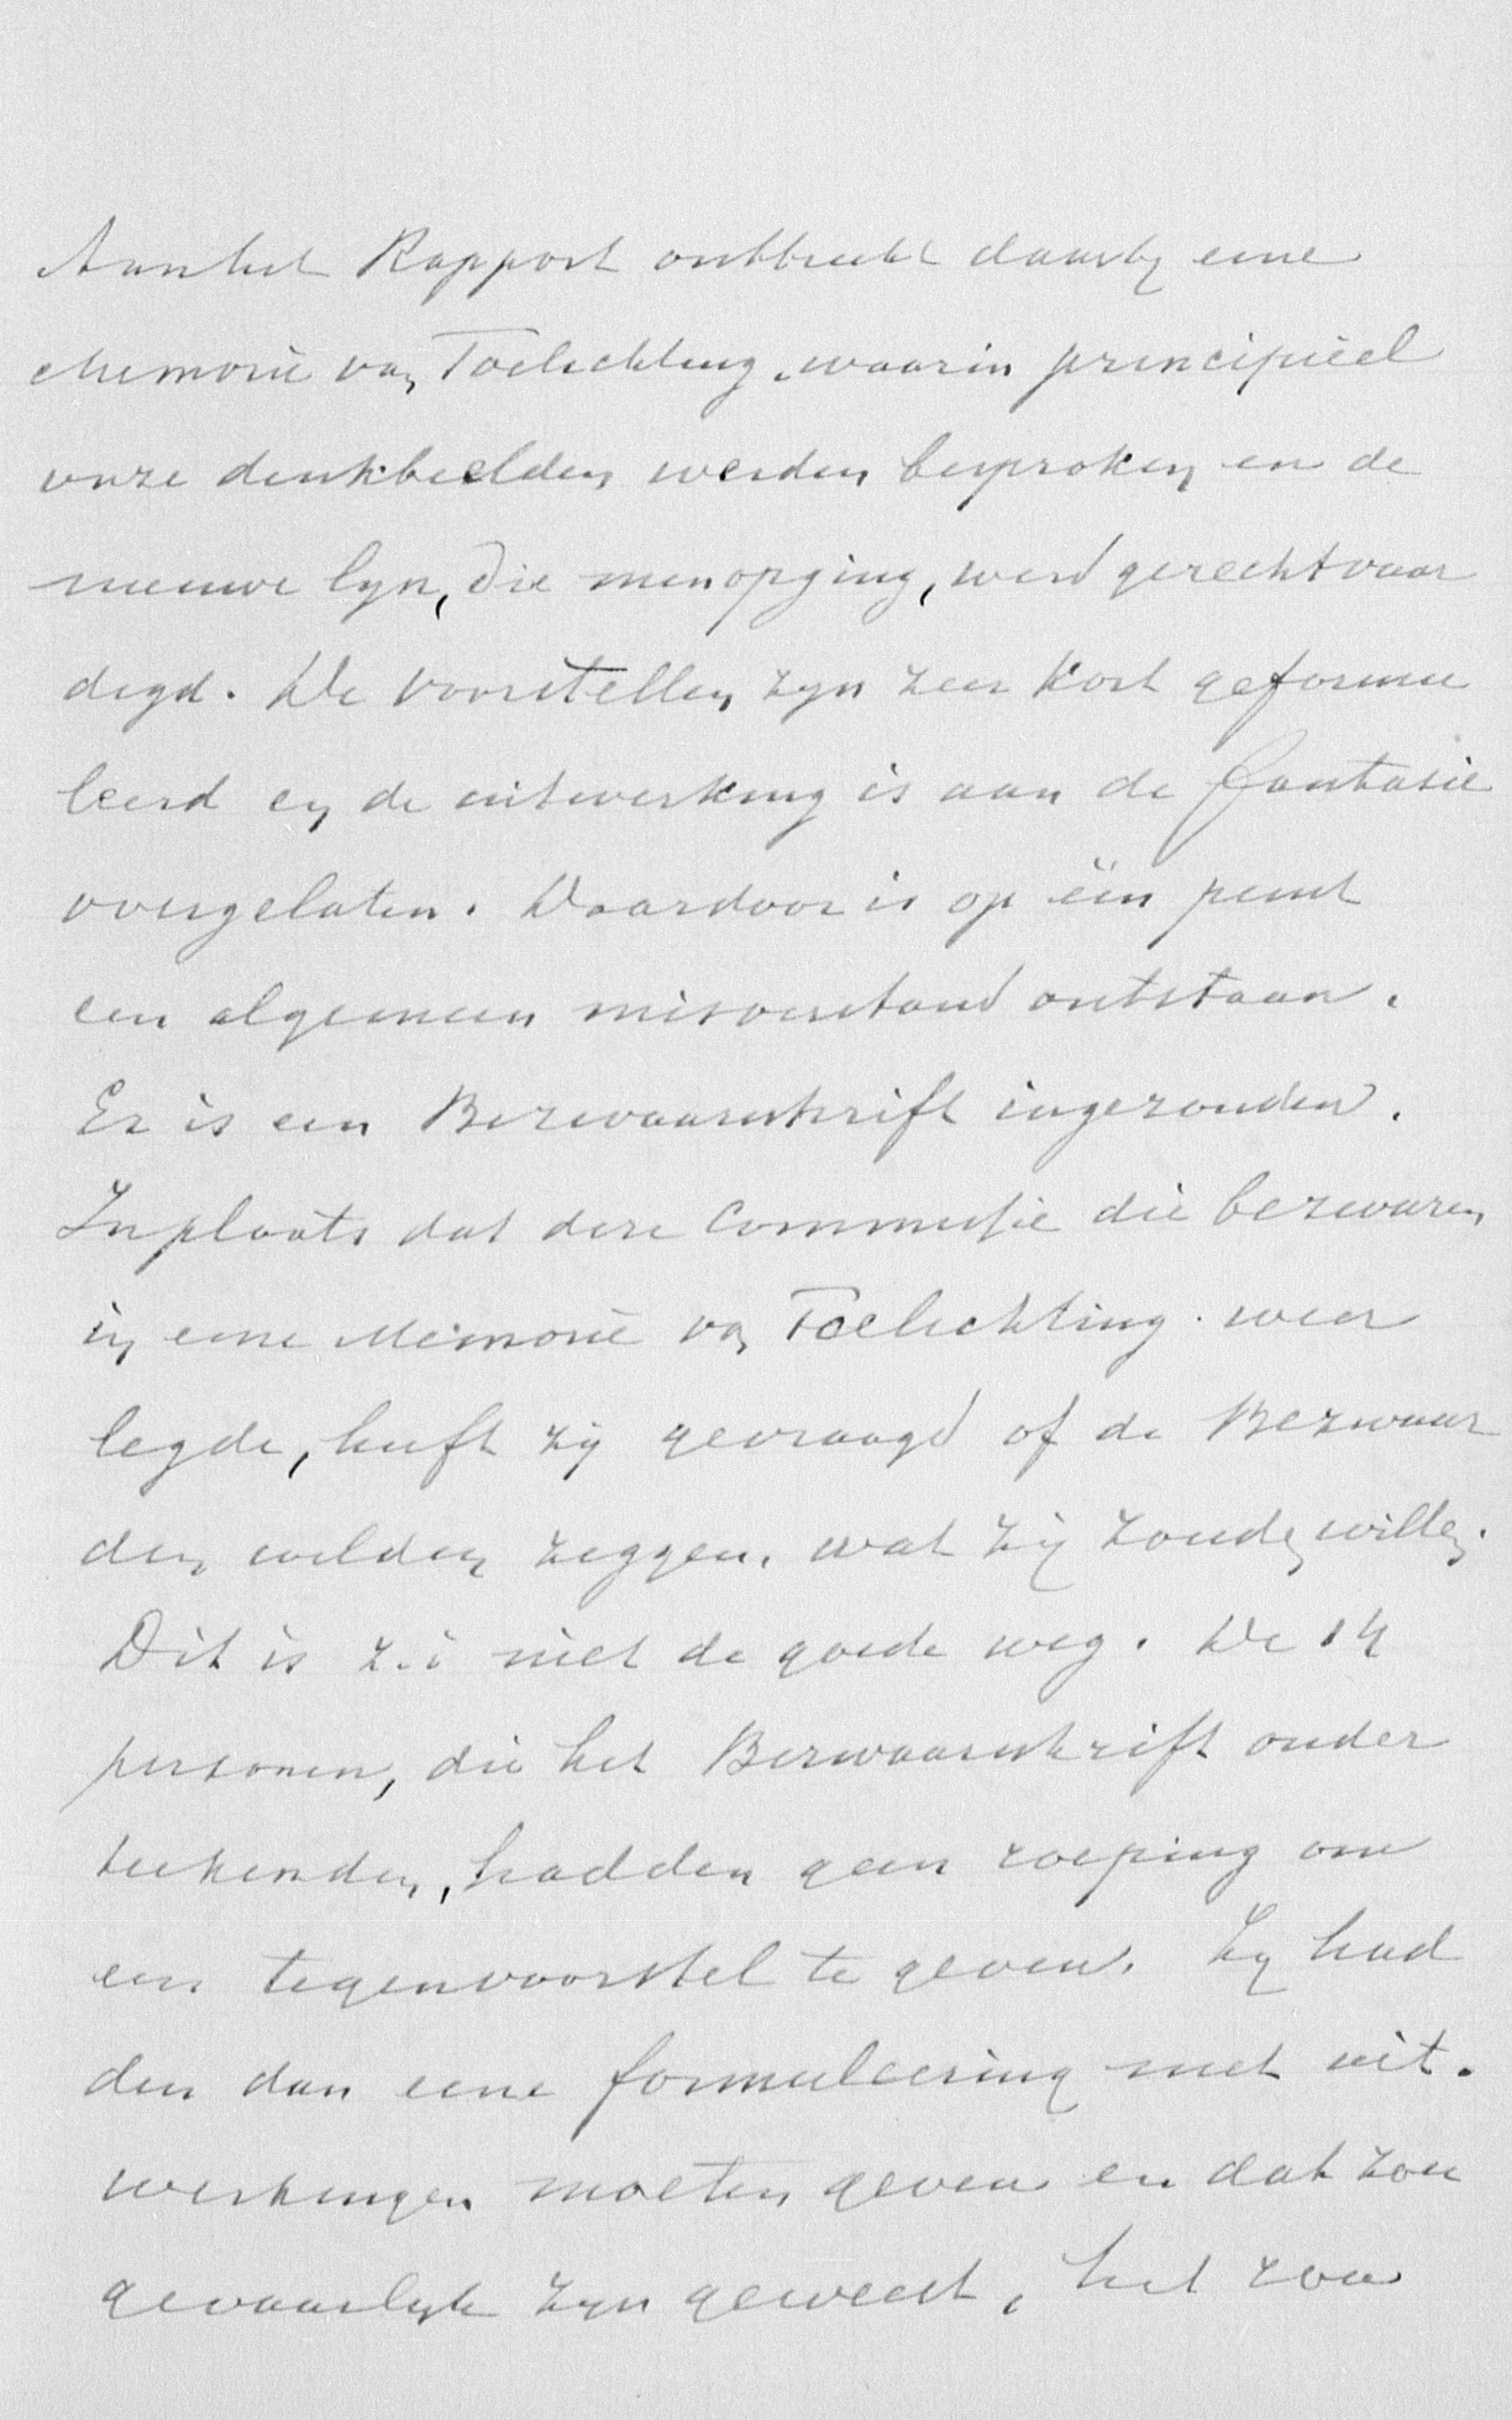 Aan het Rapport ontbreekt daarby eene
Memorie van Toelichting, waarin principieel
onze denkbeelden werden besproken en de
nieuwe lyn, die men opging, werd gerechtvaar
digd. De voorstellen zyn zeer kort geformu
leerd en de uitwerking is aan de fantasie
overgelaten. Daardoor is op één punt
een algemeen misverstand ontstaan.
Er is een Bezwaarschrift ingezonden.
In plaats dat deze Commissie die bezwaren
in eene Memorie van Toelichting weer
legde, heeft zij gevraagd of de Bezwaar
den wilden zeggen, wat zij zouden willen.
Dit is z.i. niet de goede weg. De 14
personen, die het Bezwaarschrift onder
teekenden, hadden geen roeping om
een tegenvoorstel te geven. Zy had
den dan eene formuleering met uit.
werkingen moeten geven en dat zou
gevaarlyk zyn geweest, het zou